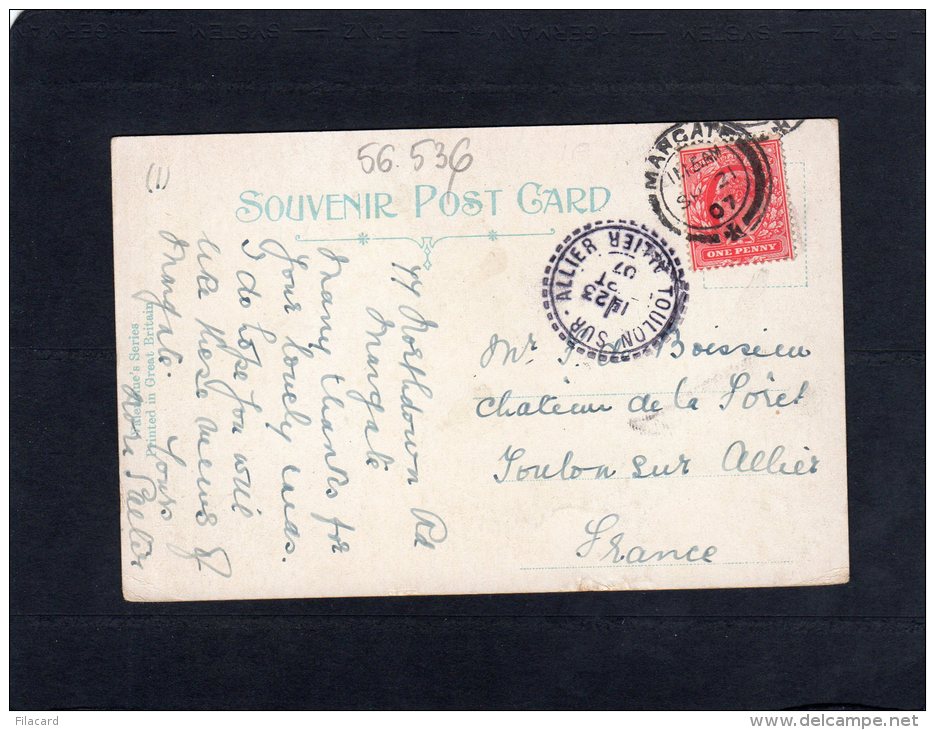 56.536
(1)
SOUVENIR POST CARD
MARGATE
SP 21
07
ONE PENNY
TOULON SUR ALLIER
ALLIER
23
07
44 Northdown Rd
Margate
Many thanks for
Your lovely cards.
I do hope you will
like these views of
Margate. Yours
Valentine's Series
Printed in Great Britain
Mr Boissieu
Château de la Fôret
Toulon sur Allier
France
Filacard
www.delcampe.net